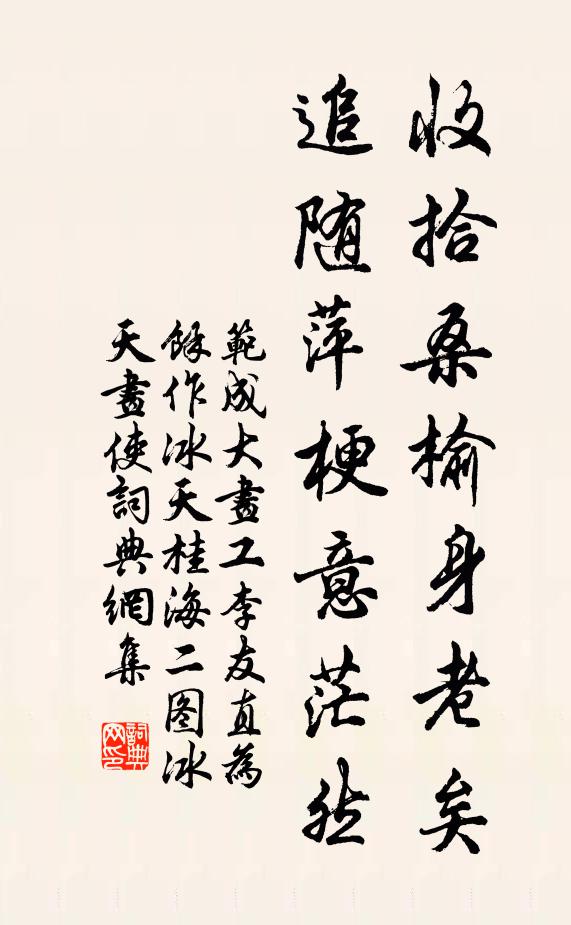 收拾桑榆身老矣
追随萍梗意茫然
範成大畫工李友直為
餘作冰天桂海二图冰
天畫使詞典網集
詞典网印